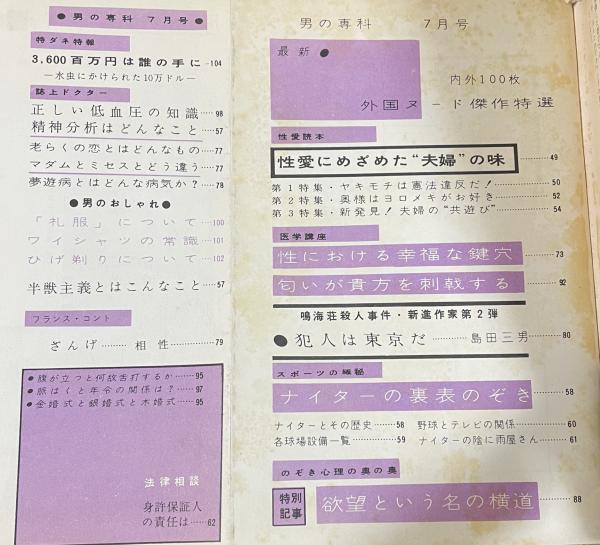 ● 男の専科 7月号 ●
特ダネ特報
3,600百万円は誰の手に…104
―水虫にかけられた10万ドル―
誌上ドクター
正しい低血圧の知識……98
精神分析はどんなこと……57
老らくの恋とはどんなもの……77
マダムとミセスとどう違う……77
夢遊病とはどんな病気か?……78
●男のおしゃれ●
「礼服」について……100
ワイシャツの常識……101
ひげ剃りについて……102
半獣主義とはこんなこと……57
フランス・コント
ざんげ……相性……79
●腹が立つと何故舌打するか……95
●脈はくと年令の関係は?……97
●金婚式と銀婚式と木婚式……95
法律相談
身許保証人
の責任は……62
男の専科 7月号
最新●
内外100枚
外国ヌード傑作特選
性愛読本
性愛にめざめた“夫婦”の味……49
第1特集・ヤキモチは憲法違反だ!……50
第2特集・奥様はヨロメキがお好き……52
第3特集・新発見!夫婦の“共遊び”……54
医学講座
性における幸福な鍵穴……73
匂いが貴方を刺戟する……92
鳴海荘殺人事件・新進作家第2弾
●犯人は東京だ……島田三男……80
スポーツの極秘
ナイターの裏表のぞき……58
ナイターとその歴史……58 野球とテレビの関係……60
各球場設備一覧……59 ナイターの陰に雨屋さん……61
のぞき心理の奥の奥
特別記事
欲望という名の横道……88